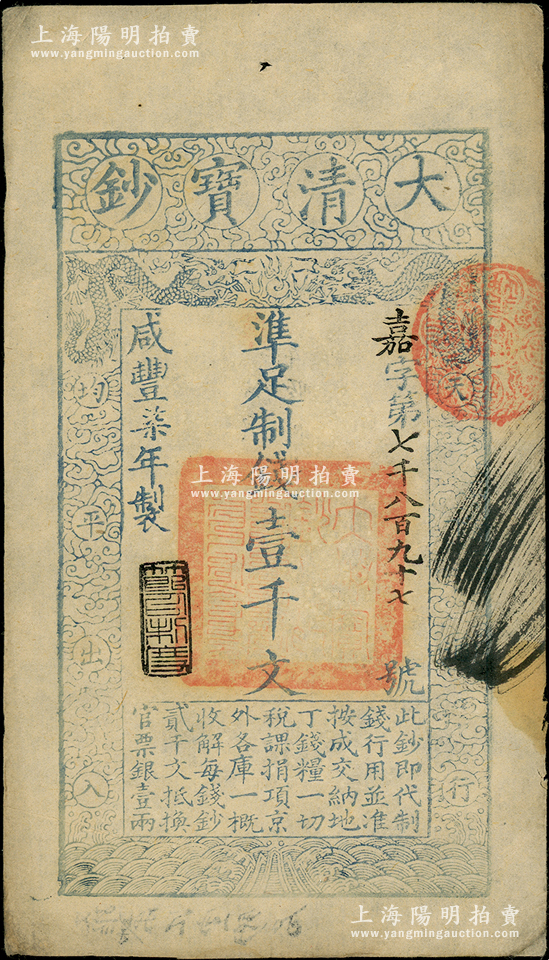 上海陽明拍賣
www.yangmingauction.com
大清寶鈔
天
行
嘉字第七千八百九十七號
準足制錢壹千文
咸豐柒年製
均平出入
此鈔即代制
錢行用並準
按成交納地
丁錢糧一切
稅課捐項京
外各庫一概
收解每錢鈔
貳千文抵換
官票銀壹兩
上海陽明拍賣
www.yangmingauction.com
上海陽明拍賣
www.yangmingauction.com